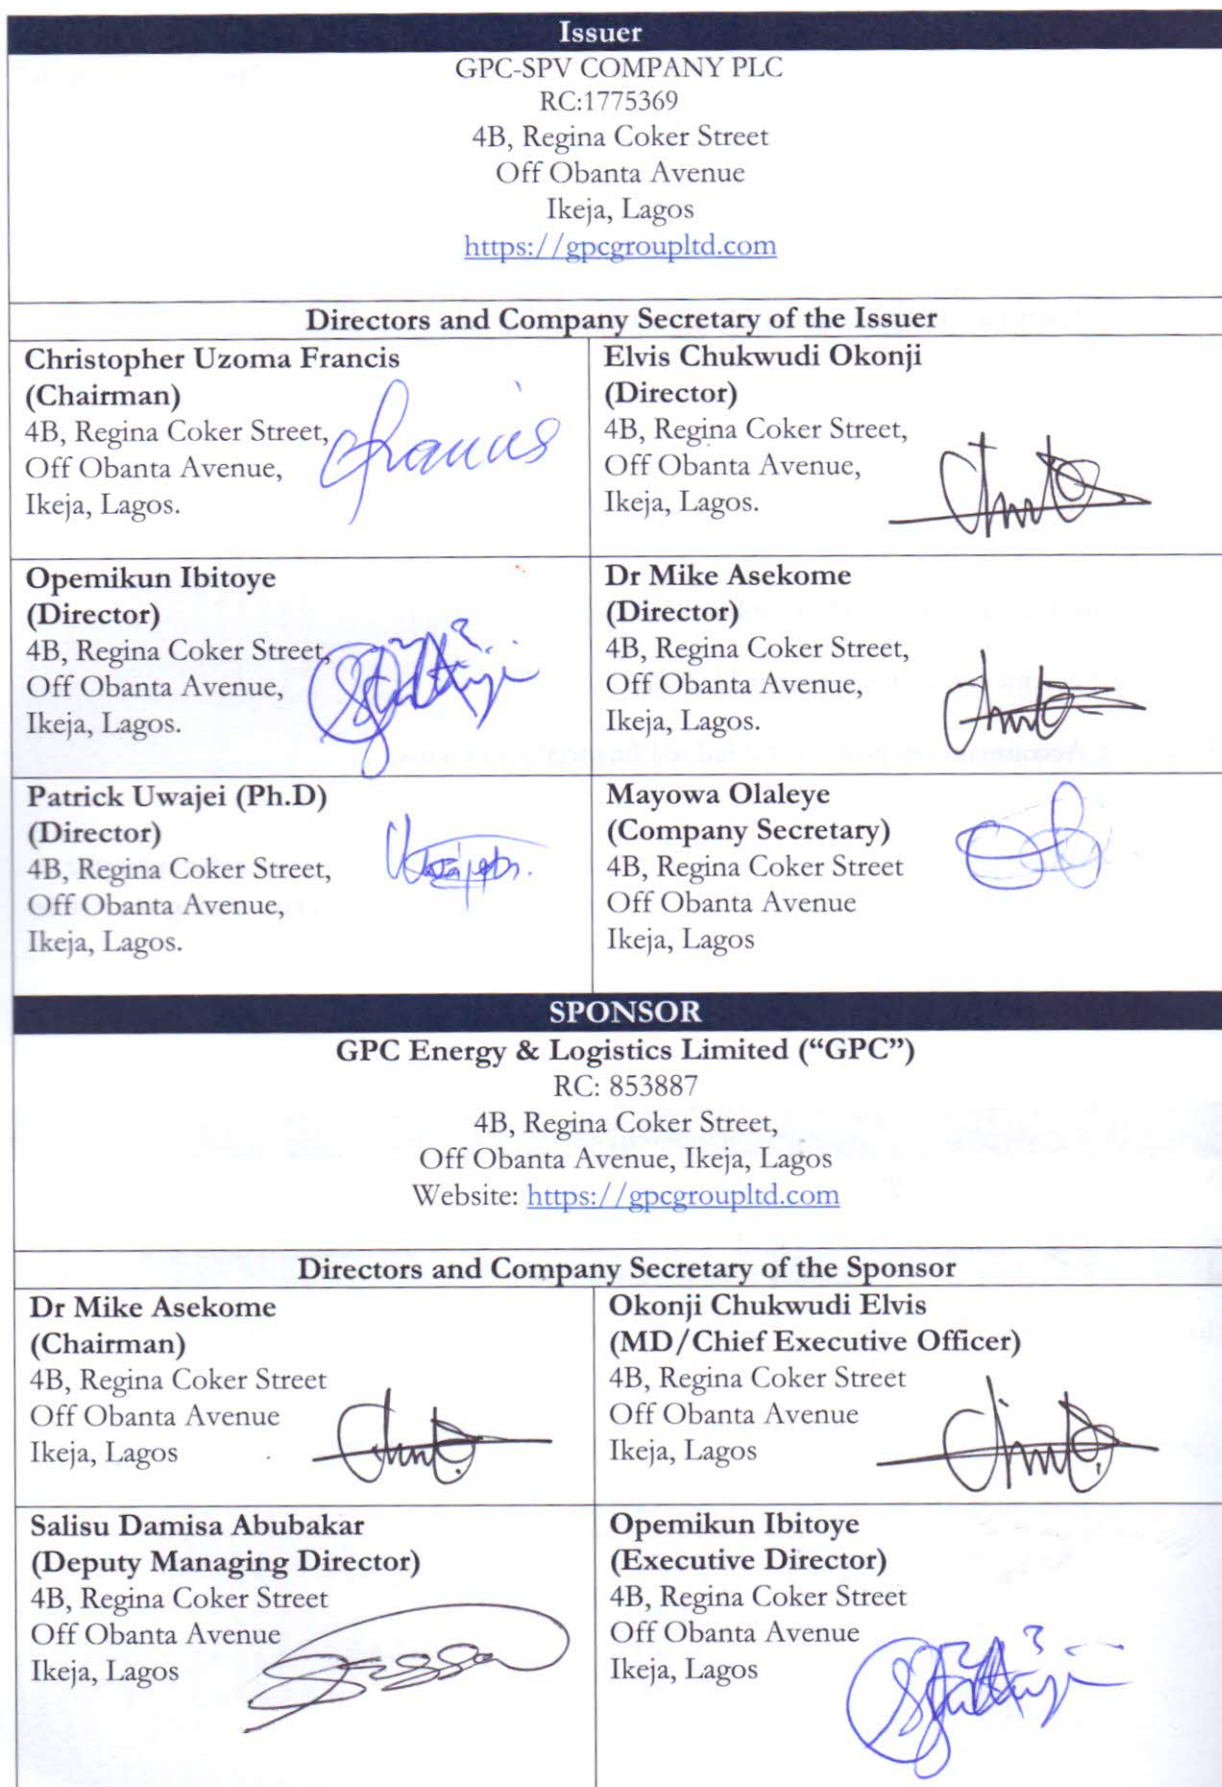 Issuer
GPC-SPV COMPANY PLC
RC:1775369
4B, Regina Coker Street
Off Obanta Avenue
Ikeja, Lagos
https://gpcgroupltd.com
Directors and Company Secretary of the Issuer
Christopher Uzoma Francis
(Chairman)
4B, Regina Coker Street,
Off Obanta Avenue,
Ikeja, Lagos.
Elvis Chukwudi Okonji
(Director)
4B, Regina Coker Street,
Off Obanta Avenue,
Ikeja, Lagos.
Opemikun Ibitoye
(Director)
4B, Regina Coker Street,
Off Obanta Avenue,
Ikeja, Lagos.
Dr Mike Asekome
(Director)
4B, Regina Coker Street,
Off Obanta Avenue,
Ikeja, Lagos.
Patrick Uwajei (Ph.D)
(Director)
4B, Regina Coker Street,
Off Obanta Avenue,
Ikeja, Lagos.
Mayowa Olaleye
(Company Secretary)
4B, Regina Coker Street
Off Obanta Avenue
Ikeja, Lagos
SPONSOR
GPC Energy & Logistics Limited (“GPC”)
RC: 853887
4B, Regina Coker Street,
Off Obanta Avenue, Ikeja, Lagos
Website: https://gpcgroupltd.com
Directors and Company Secretary of the Sponsor
Dr Mike Asekome
(Chairman)
4B, Regina Coker Street
Off Obanta Avenue
Ikeja, Lagos
Okonji Chukwudi Elvis
(MD/Chief Executive Officer)
4B, Regina Coker Street
Off Obanta Avenue
Ikeja, Lagos
Salisu Damisa Abubakar
(Deputy Managing Director)
4B, Regina Coker Street
Off Obanta Avenue
Ikeja, Lagos
Opemikun Ibitoye
(Executive Director)
4B, Regina Coker Street
Off Obanta Avenue
Ikeja, Lagos